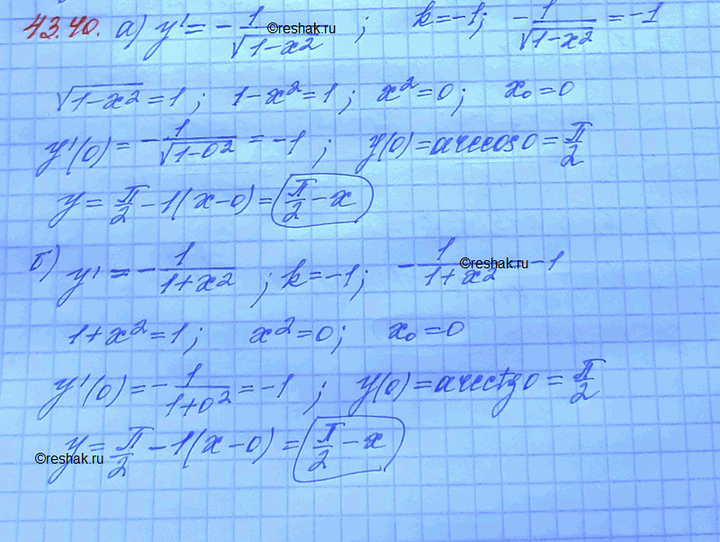 43.40. а) y' = -1/√(1-x²) ; k=-1; -1/√(1-x²) = -1
©reshak.ru
√(1-x²) = 1; 1-x²=1; x²=0; x₀=0
y'(0) = -1/√(1-0²) = -1 ; y(0)=arccos0 = π/2
y = π/2 - 1(x-0) = π/2 - x
б) y' = -1/(1+x²) ; k=-1; -1/(1+x²) = -1
©reshak.ru
1+x²=1; x²=0; x₀=0
y'(0) = -1/(1+0²) = -1 ; y(0)=arcctg0 = π/2
y = π/2 - 1(x-0) = π/2 - x
©reshak.ru